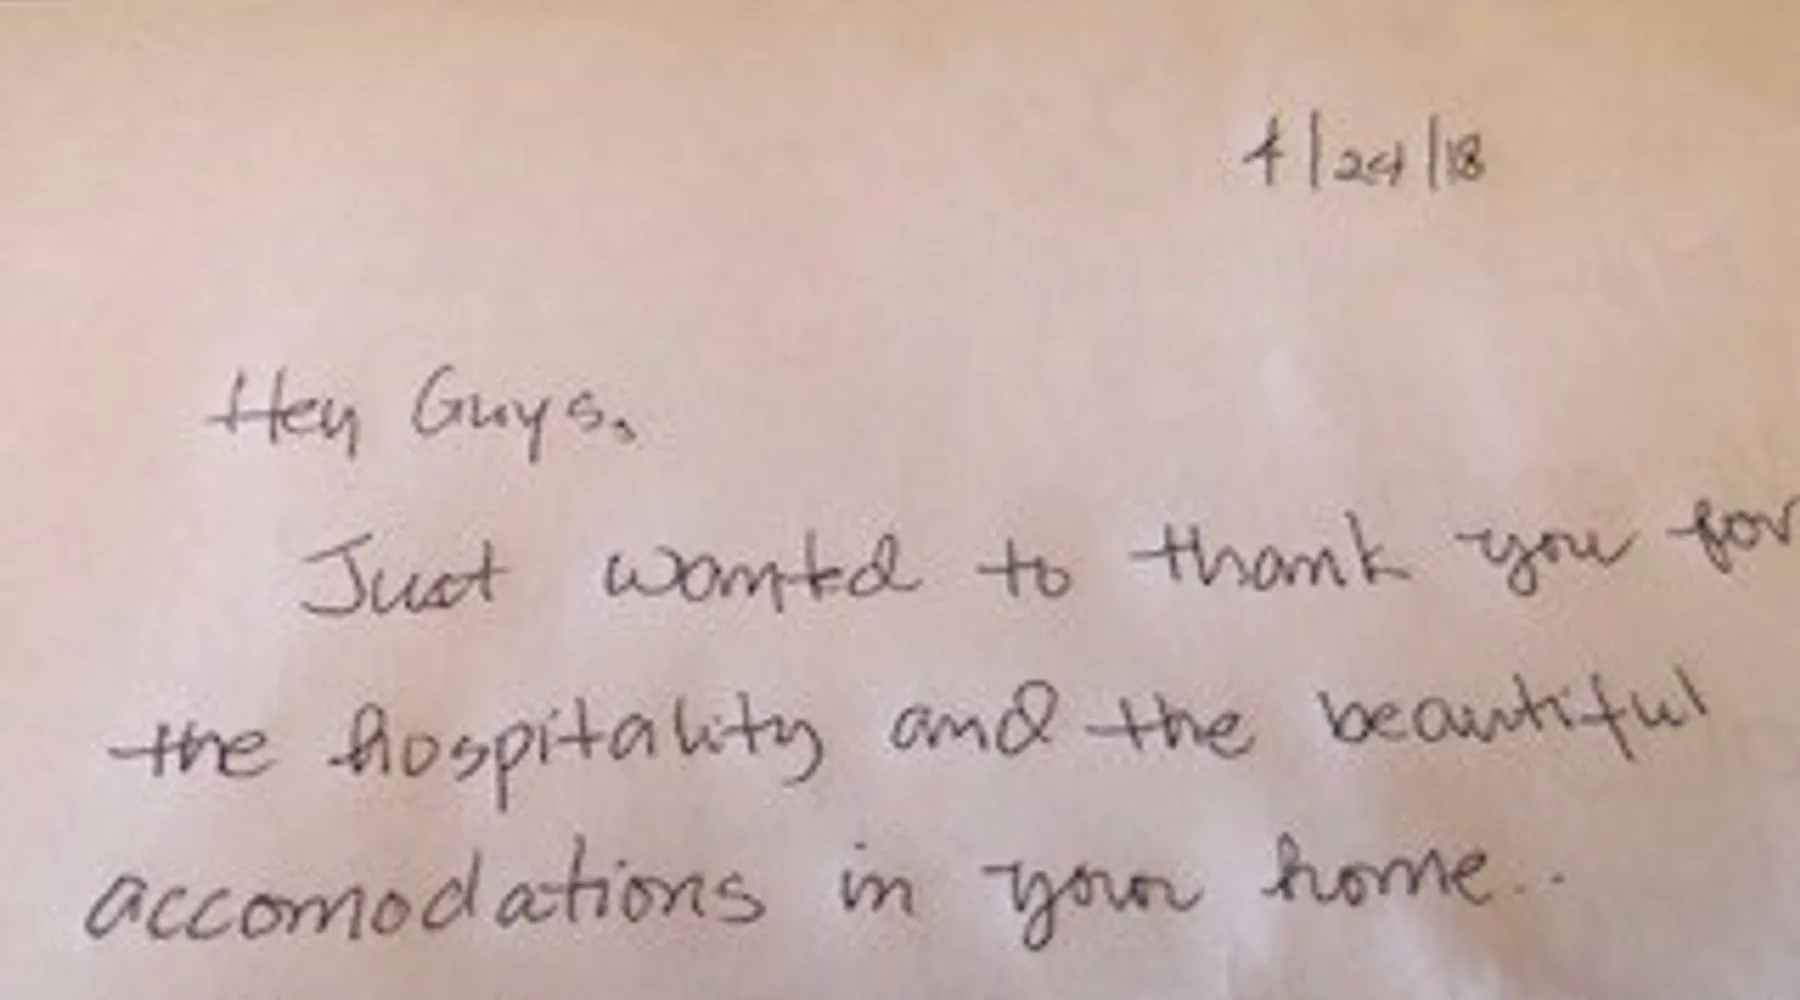 4/24/18
Hey Guys,
Just wanted to thank you for
the hospitality and the beautiful
accomodations in your home..